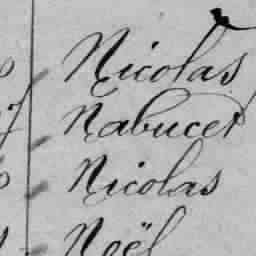 Nicolas
Nabucet
Nicolas
Noël